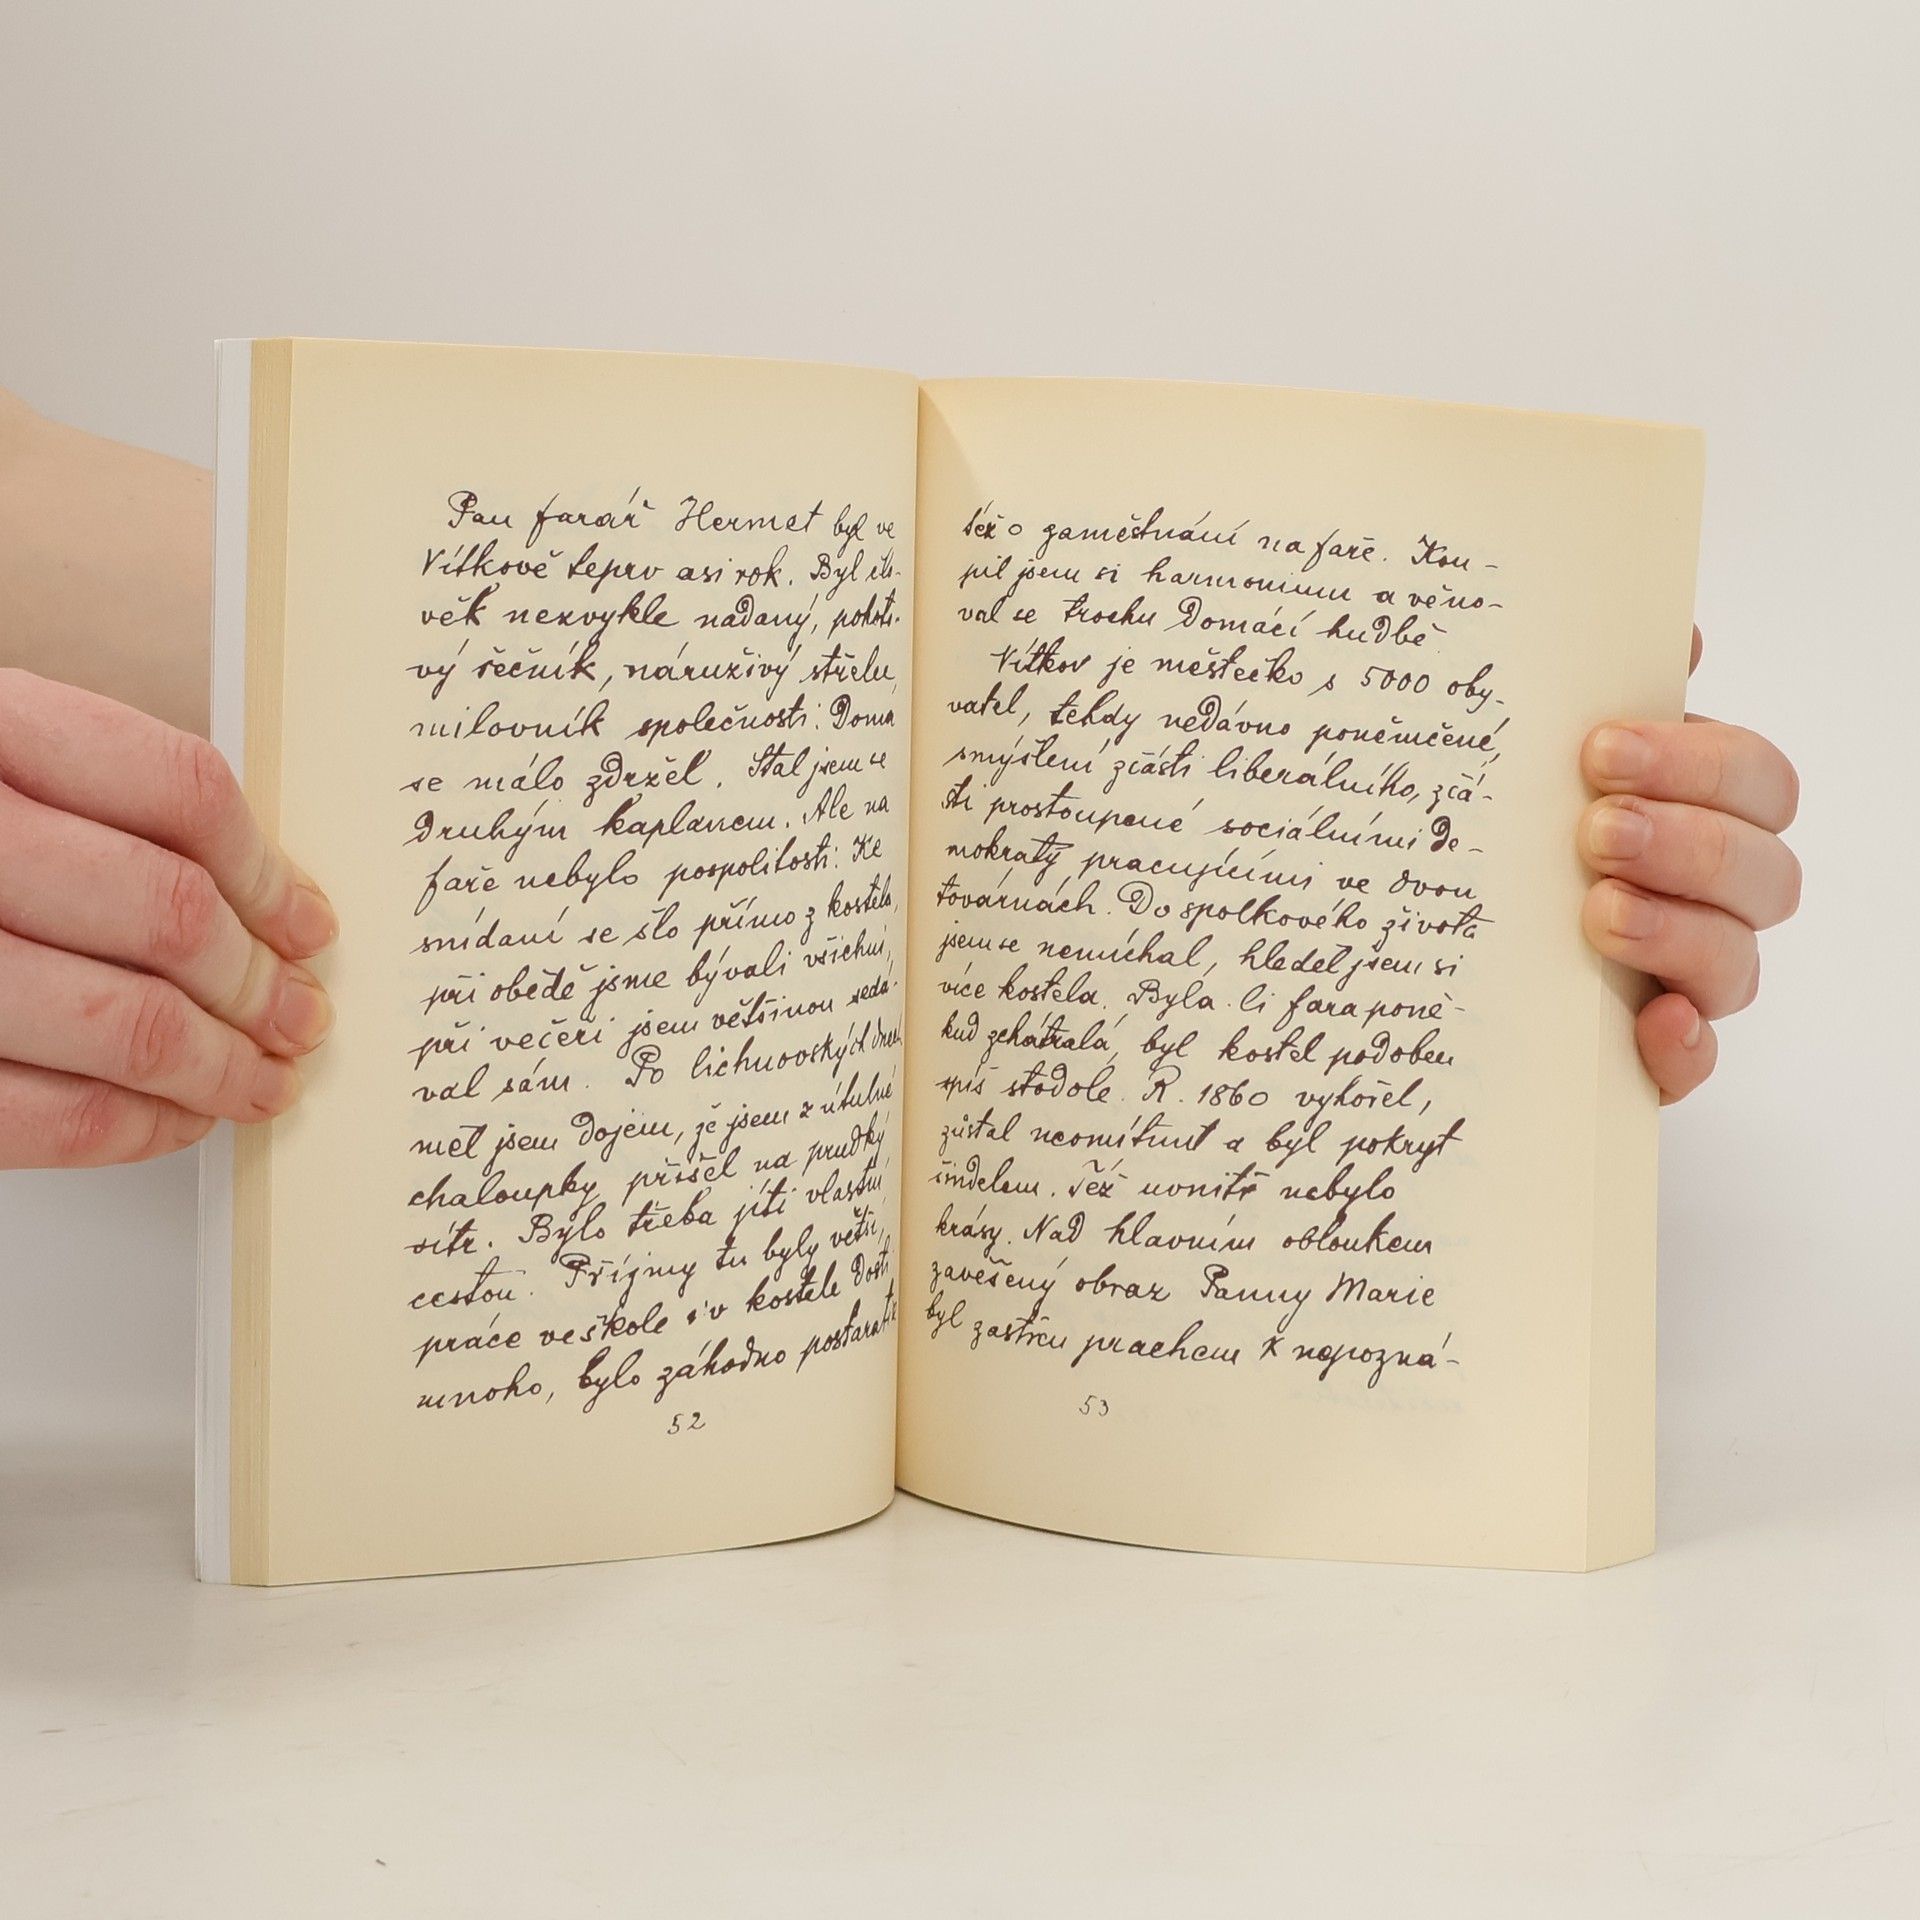 Pan farář Hermet byl ve
Vítkově teprv asi rok. Byl člo-
věk nezvykle nadaný, pohoto-
vý řečník, náruživý střelec,
milovník společnosti. Doma
se málo zdržel. Stal jsem se
druhým kaplanem. Ale na
faře nebylo pospolitosti: Ke
snídaní se šlo přímo z kostela,
při obědě jsme bývali všichni,
při večeři jsem většinou sedá-
val sám. Po lichnovských dnech
měl jsem dojem, že jsem z útulné
chaloupky přišel na prudký
vítr. Bylo třeba jíti vlastní
cestou. Příjmy tu byly větší,
práce ve škole i v kostele dosti
mnoho, bylo záhodno postarat se
52
též o zaměstnání na faře. Kou-
pil jsem si harmonium a věno-
val se trochu domácí hudbě
Vítkov je městečko s 5000 oby-
vatel, tehdy nedávno poněmčené,
smýšlení zčásti liberálního, zčá-
sti prostoupené sociálními de-
mokraty, pracujícími ve dvou
továrnách. Do spolkového života
jsem se nemíchal, hleděl jsem si
více kostela. Byla-li fara poně-
kud zchátralá, byl kostel podoben
spíš stodole. R. 1860 vyhořel,
zůstal neomítnut a byl pokryt
šindelem. Též uvnitř nebylo
krásy. Nad hlavním obloukem
zavěšený obraz Panny Marie
byl zastřen prachem k nepozná-
53